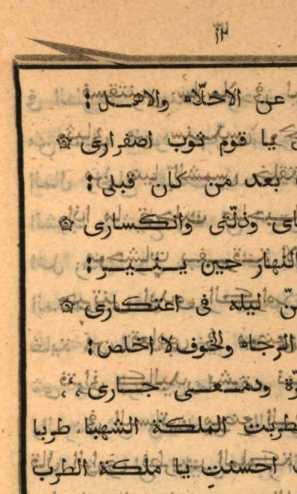 عن الاخلاء والاهل؛
يا قوم ثوب اصفراري
بعد من كان قبلي؛
وذلتي وانكساري
النهار حين يسير؛
ليله في اعتكاري
الرجاء والخوف لا اخلص؛
ودمعي جاري
طربت الملكة الشهبا طربا
احسنت يا ملكة الطرب